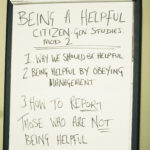 BEING A HELPFUL
CITIZEN GOV STUDIES
MOD 2.
1. WHY WE SHOULD BE HELPFUL
2 BEING HELPFUL BY OBEYING
MANAGEMENT
3 HOW TO REPORT
THOSE WHO ARE NOT
BEING HELPFUL